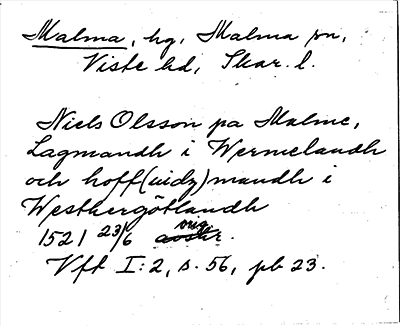 Malma, hg, Malma sn,
Viste hd, Skar. l.
Niels Olsson pa Malme,
Lagmandh i Wermelandh
och hoff(uidz)mandh i
Westhergötlandh
1521 23/6 orig.
Vft I:2, s. 56, pb 23.